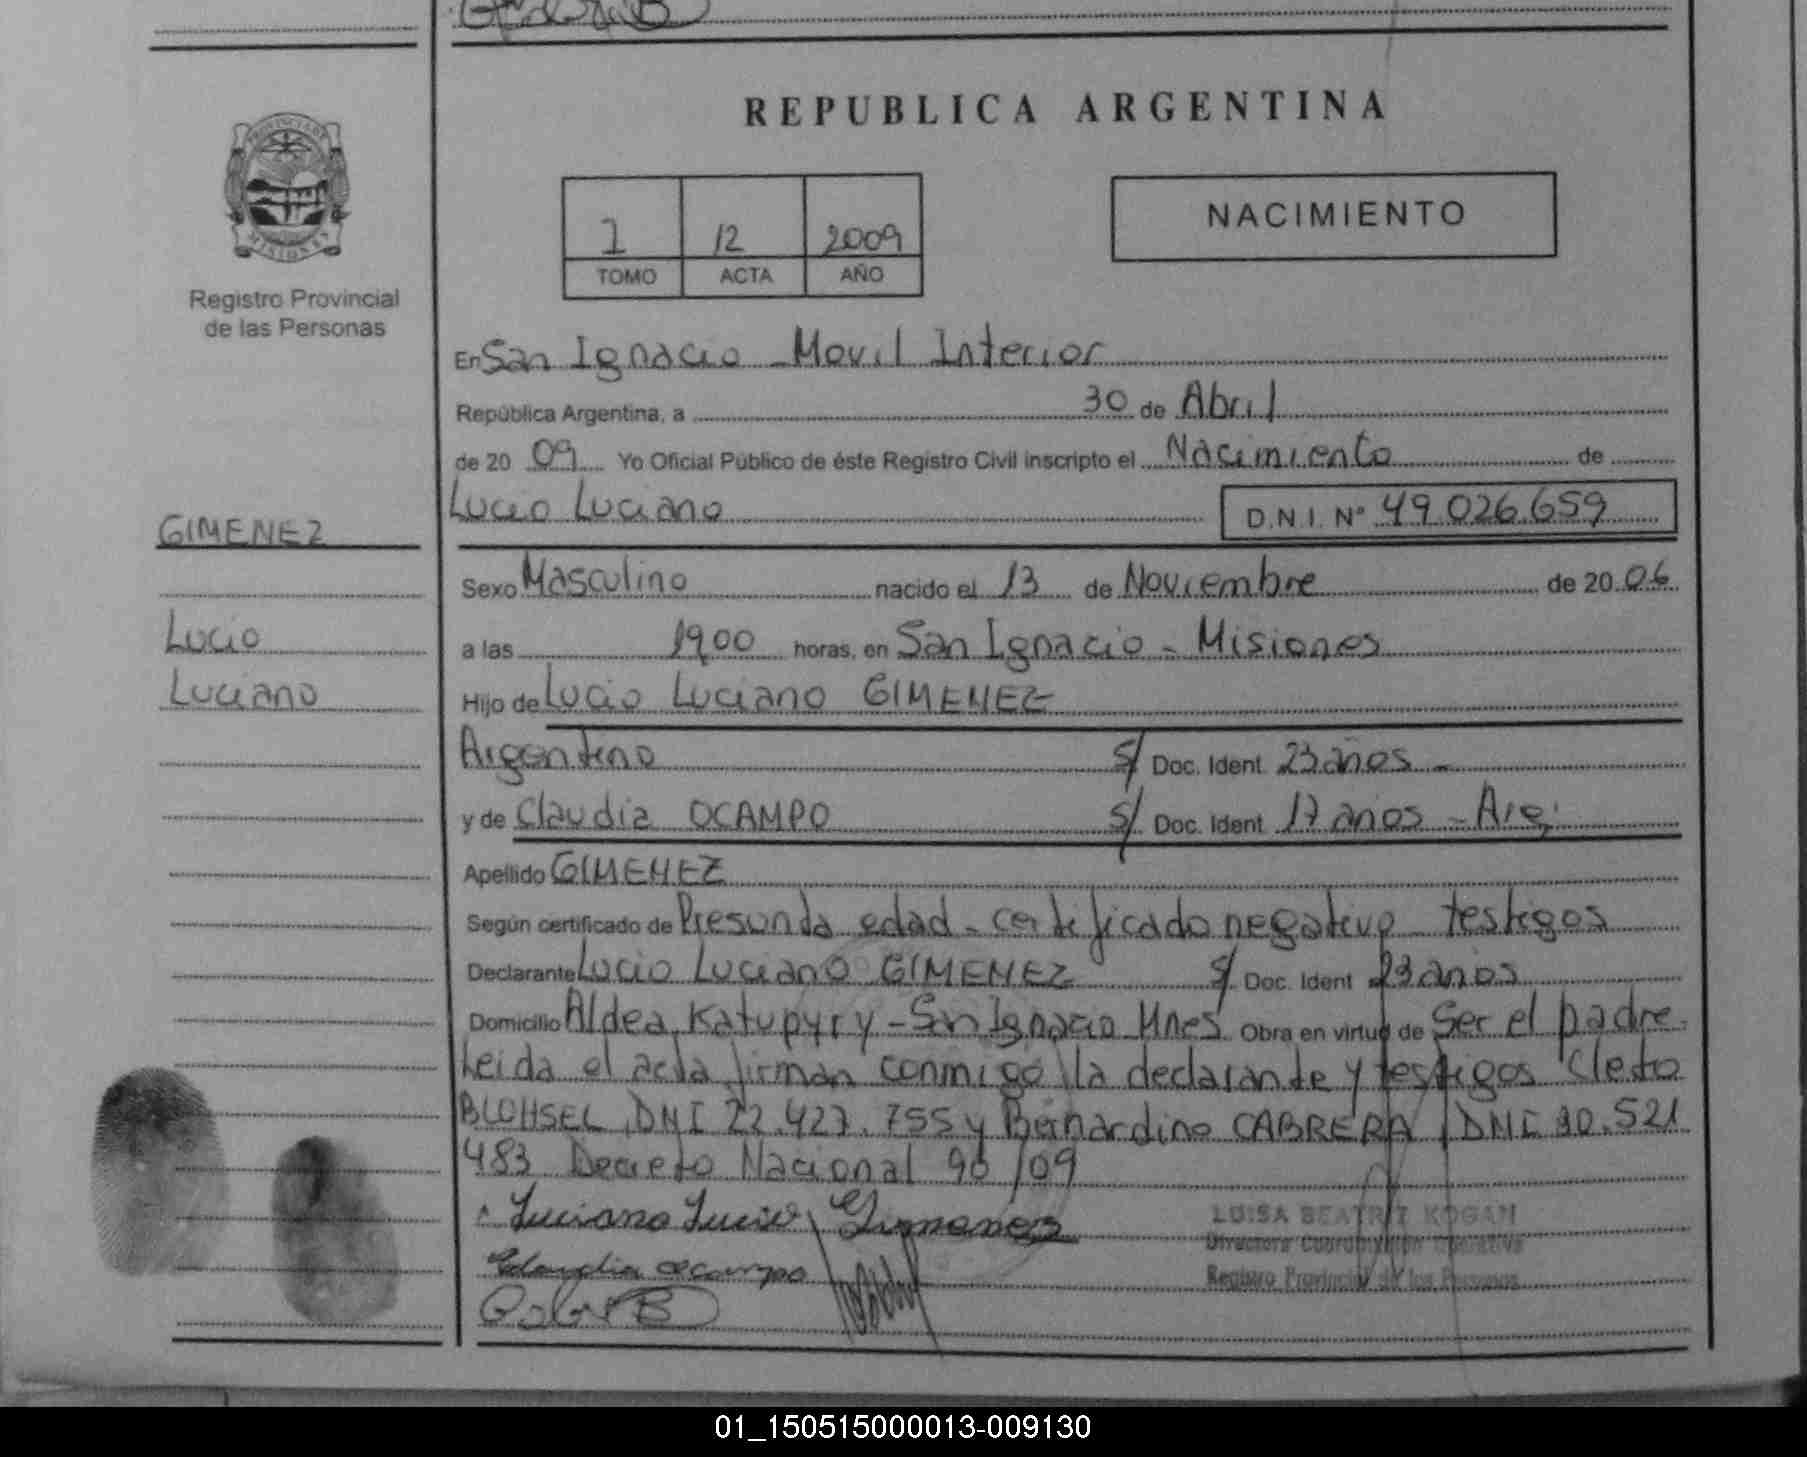 REPUBLICA ARGENTINA
PROVINCIA DE
MISIONES
Registro Provincial
de las Personas
1 12 2009
TOMO ACTA AÑO
NACIMIENTO
En San Ignacio - Movil Interior
República Argentina, a 30 de Abril
de 20 09 Yo Oficial Público de éste Registro Civil inscripto el Nacimiento de
Lucio Luciano D.N.I. Nº 49.026.659
GIMENEZ
Lucio
Luciano
Sexo Masculino nacido el 13 de Noviembre de 20 06
a las 19,00 horas, en San Ignacio - Misiones
Hijo de Lucio Luciano GIMENEZ
Argentino S/ Doc. Ident. 23 años -
y de Claudia OCAMPO S/ Doc. Ident. 17 años - Arg.
Apellido GIMENEZ
Según certificado de Presunta edad - certificado negativo - testigos
Declarante Lucio Luciano GIMENEZ S/ Doc. Ident 23 años
Domicilio Aldea Katupyry - San Ignacio Mnes Obra en virtud de Ser el padre.
Leida el acta firman conmigo la declarante y testigos Cleto
BLOHSEL, DNI 22.427.755 y Bernardino CABRERA, DNI 30.521
483 Decreto Nacional 90/09
Luciano Lucio Gimenez
Claudia ocampo
LUISA BEATRIZ KOGAN
Directora Coordinación Operativa
Registro Provincial de las Personas
01_150515000013-009130